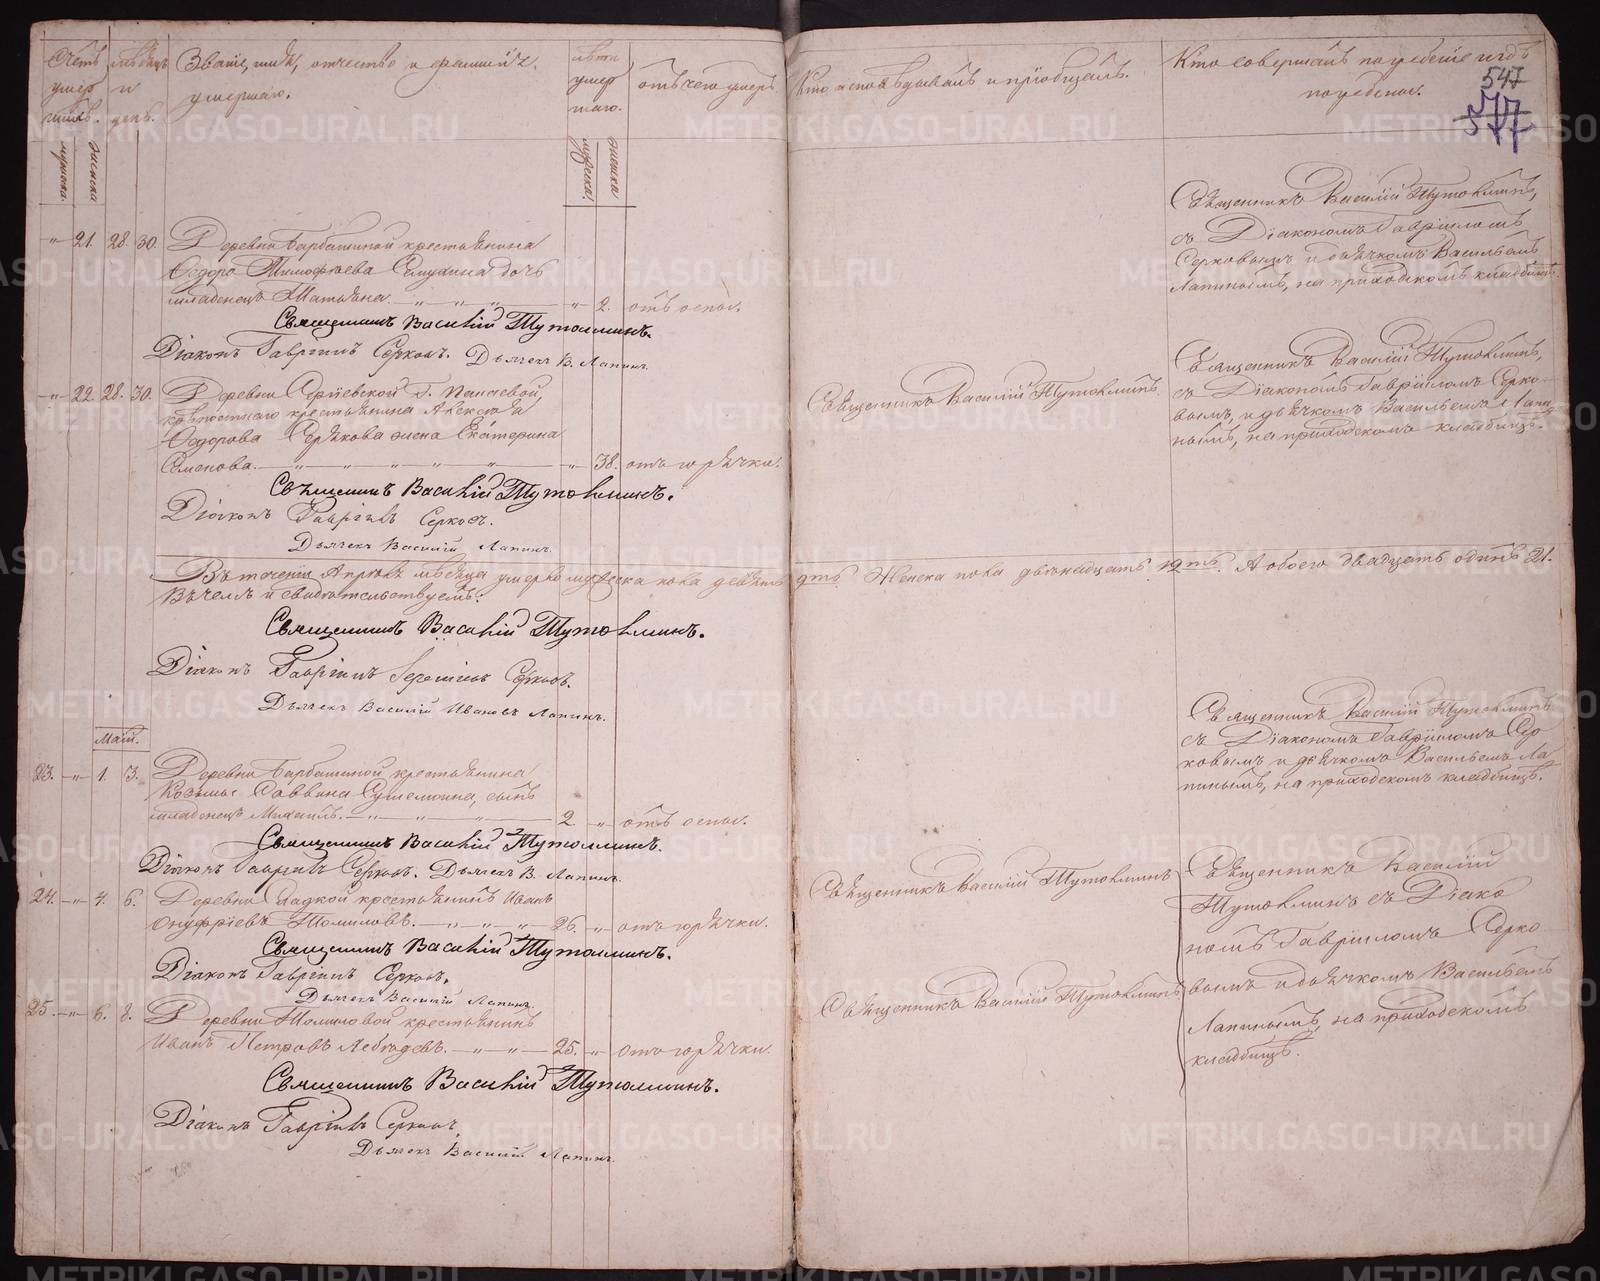 Счетъ умершихъ.
Мѣсяцъ и день.
Званіе, имя, отчество и фамилія
умершаго.
Лѣта умершаго.
отъ чего умеръ
Кто исповѣдывалъ и пріобщалъ.
Кто совершалъ погребеніе и гдѣ
погребены.
547
577
мужеска.
женска
мужеска.
женска
" 21. 28. 30. Деревни Барбашиной крестьянина
Ѳедора Тимофѣева дочь
младенецъ Татьяна. " 2. отъ оспы.
Священникъ Василій Тутолминъ.
Діаконъ Гавріилъ Серковъ. Дьячекъ В. Лапинъ.
Священникъ Василій Тутолминъ,
съ Діакономъ Гавріиломъ
Серковымъ и дьячкомъ Васильемъ
Лапинымъ, на приходскомъ кладбищѣ.
" 22. 28. 30. Деревни Сергіевской Г.
крѣпостнаго крестьянина Алексѣя
Ѳедорова Серѣкова жена Екатерина
Семенова. " 38. отъ горячки.
Священникъ Василій Тутолминъ.
Діаконъ Гавріилъ Серковъ.
Дьячекъ Василій Лапинъ.
Священникъ Василій Тутолминъ
Священникъ Василій Тутолминъ,
съ Діакономъ Гавріиломъ Серко-
вымъ, и дьячкомъ Васильемъ Лапи-
нымъ, на приходскомъ кладбищѣ.
Въ теченіи Апрѣля мѣсяца умерло мужеска пола девять 9ть. Женска пола двѣнадцать 12ть. А обоего двадцать одинъ 21.
Въ чемъ и свидѣтельствуемъ:
Священникъ Василій Тутолминъ.
Діаконъ Гавріилъ Серковъ.
Дьячекъ Василій Ивановъ Лапинъ.
Май.
23. " 1. 3. Деревни Барбашиной крестьянина
Козьмы Саввина сынъ
младенецъ Михаилъ. 2 " отъ оспы.
Священникъ Василій Тутолминъ.
Діаконъ Гавріилъ Серковъ. Дьячекъ В. Лапинъ.
Священникъ Василій Тутолминъ
съ Діакономъ Гавріиломъ Сер-
ковымъ и дьячкомъ Васильемъ Ла-
пинымъ, на приходскомъ кладбищѣ.
24. " 4. 6. Деревни Гладкой крестьянинъ Иванъ
Онуфріевъ Томиловъ. 26. " отъ горячки.
Священникъ Василій Тутолминъ.
Діаконъ Гавріилъ Серковъ.
Дьячекъ Василій Лапинъ.
Священникъ Василій Тутолминъ
25. " 6. 8. Деревни Томиловой крестьянинъ
Иванъ Петровъ Лебедевъ. 25. " отъ горячки.
Священникъ Василій Тутолминъ.
Діаконъ Гавріилъ Серковъ.
Дьячекъ Василій Лапинъ.
Священникъ Василій Тутолминъ
Священникъ Василій
Тутолминъ съ Діако-
номъ Гавріиломъ Серко-
вымъ и дьячкомъ Васильемъ
Лапинымъ, на приходскомъ
кладбищѣ.
METRIKI.GASO-URAL.RU